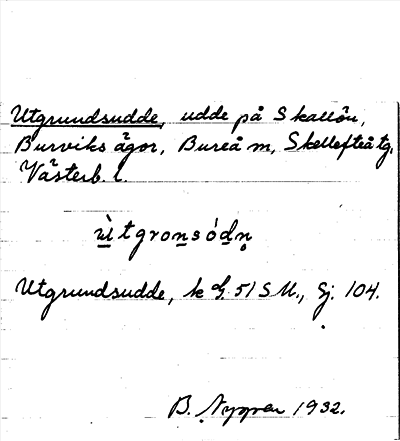 Utgrundsudde, udde på Skallön,
Burviks ägor, Bureå m, Skellefteå tg,
Västerb. l.
ùtgronsódn̥
Utgrundsudde, k G. 51 S M., Gj. 104.
B. Nygren 1932.